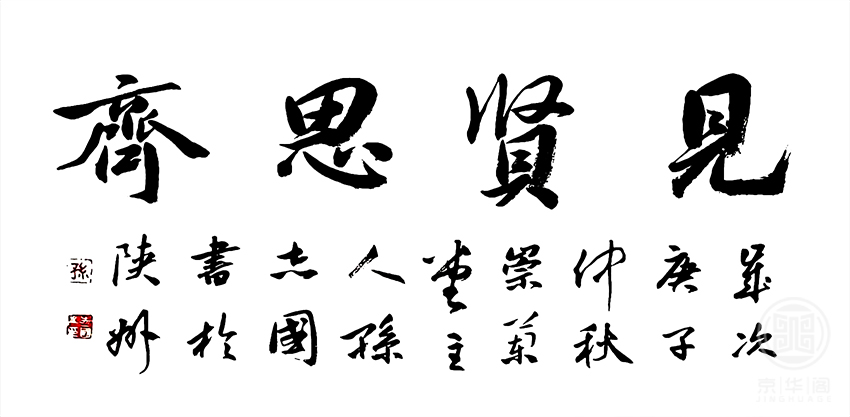 見賢思齊
歲次
庚子
仲秋
崇蘭
堂主
人孫
志國
書於
陝州
孫
京华阁
JINGHUAGE